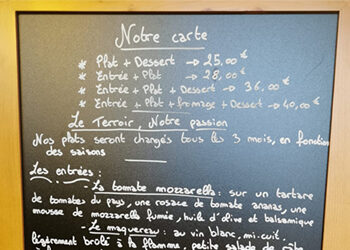 Notre carte
* Plat + Dessert → 25,00€
* Entrée + Plat → 28,00€
* Entrée + Plat + Dessert → 36,00€
* Entrée + Plat + fromage + Dessert → 40,00€
Le Terroir, Notre passion
Nos plats seront changés tous les 3 mois, en fonction
des saisons
Les entrées :
- La tomate mozzarella : sur un tartare
de tomates du pays, une rosace de tomate ananas, une
mousse de mozzarella fumée, huile d'olive et balsamique
- Le maquereau : au vin blanc, mi-cuit,
légèrement brulé à la flamme, petite salade de